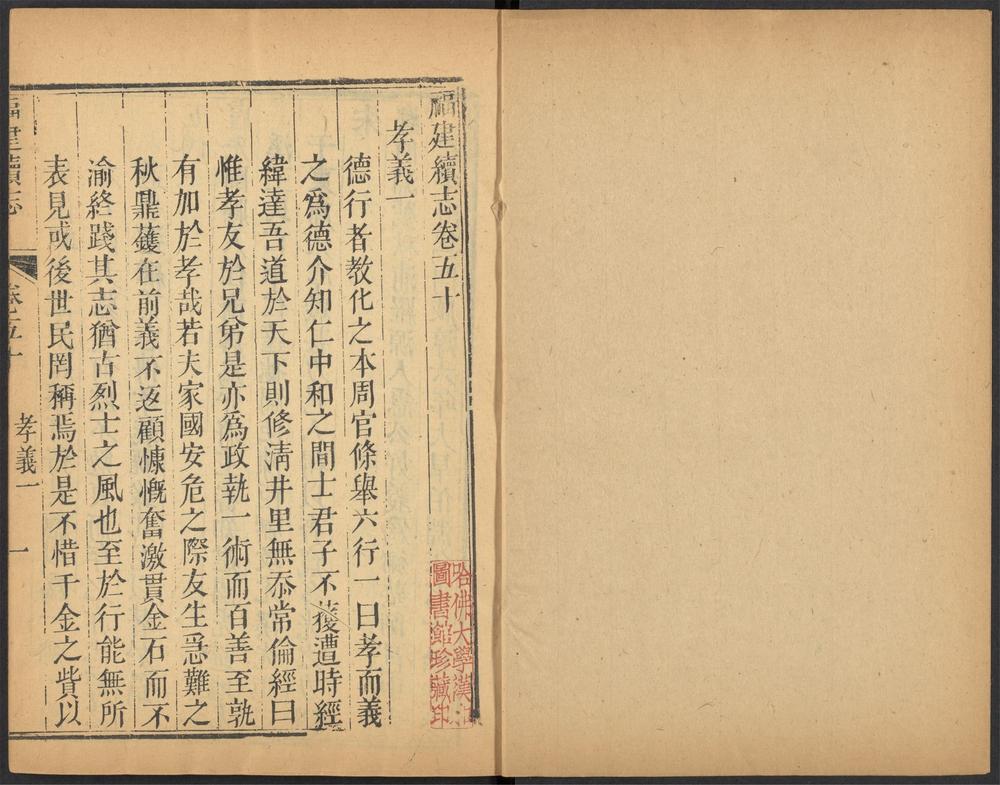 福建續志卷五十
孝義一
德行者教化之本周官條舉六行一曰孝而義
之爲德介知仁中和之間士君子不獲遭時經
緯達吾道於天下則修淸井里無忝常倫經曰
惟孝友於兄弟是亦爲政執一術而百善至孰
有加於孝哉若夫家國安危之際友生急難之
秋鼎鑊在前義不返顧慷慨奮激貫金石而不
渝終踐其志猶古烈士之風也至於行能無所
表見或後世民罔稱焉於是不惜千金之貲以
福建續志
卷五十
孝義一
一
哈佛大學漢和
圖書館珍藏印